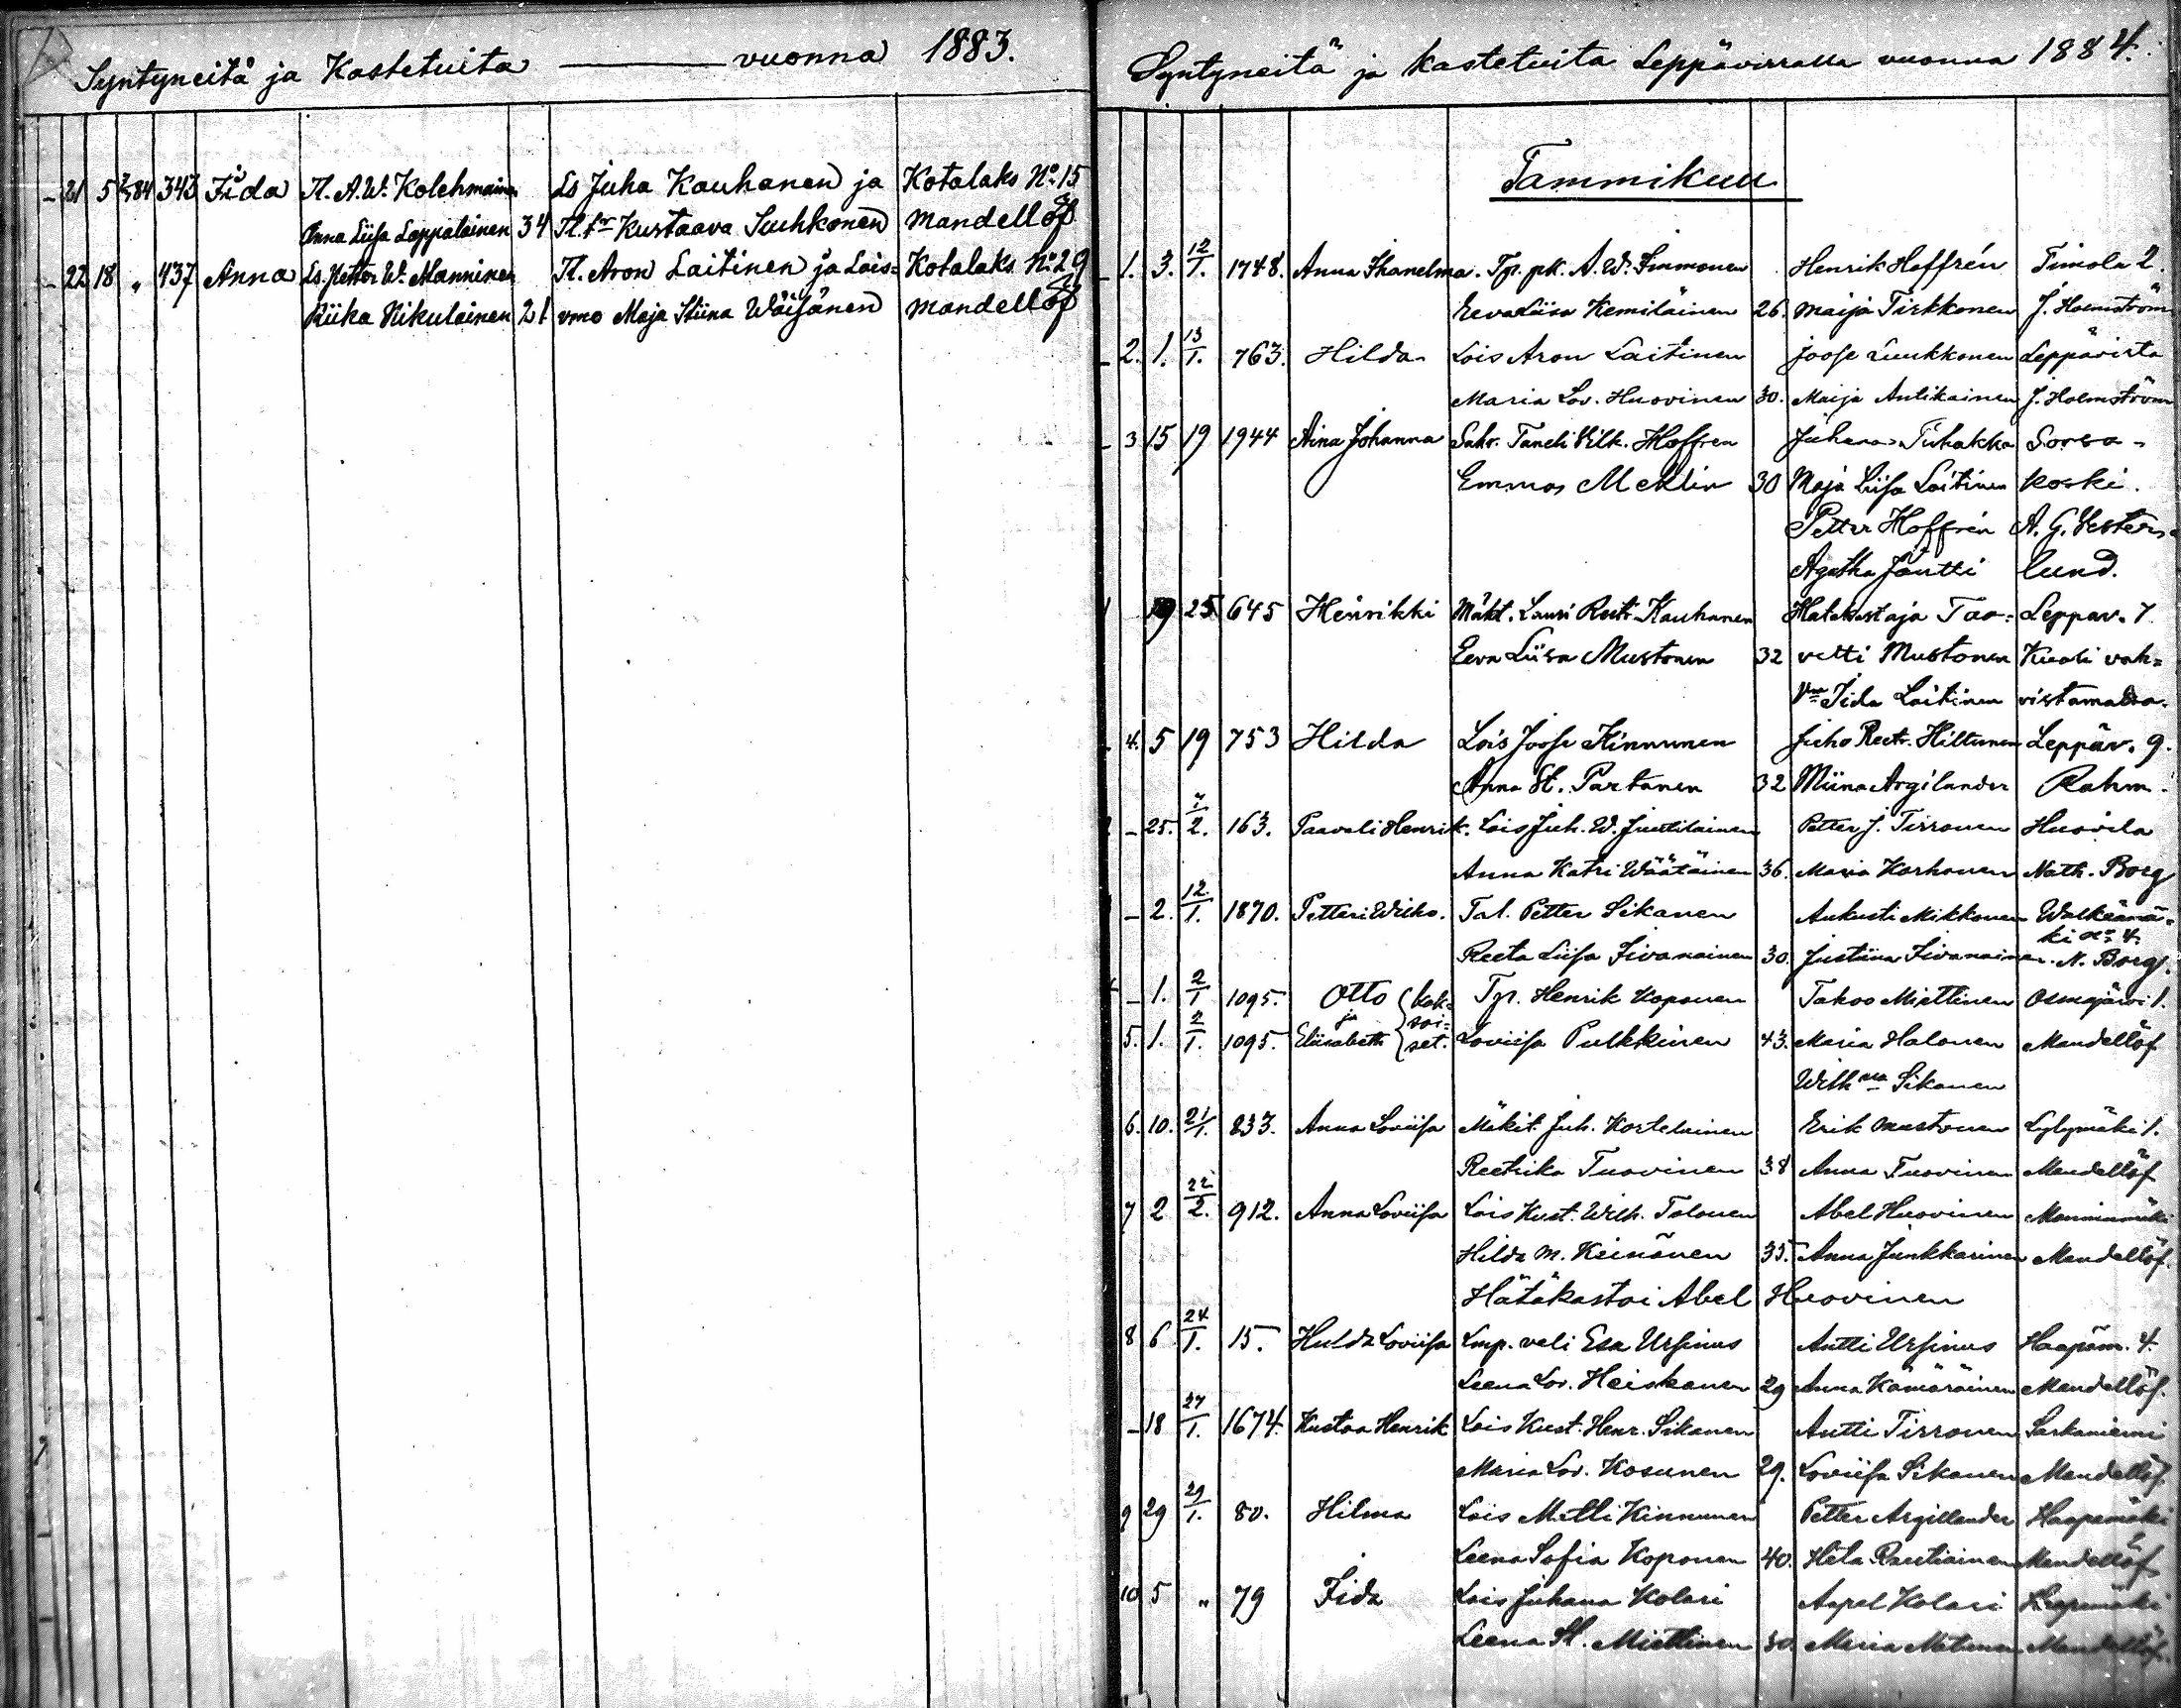 Syntyneitä ja Kastetuita — vuonna 1883.
- 21 5 2/1 84 343 Iida Tl. A.W. Kolehmainen Ls Juha Kauhanen ja Kotalaks No 15
Anna Liisa Lappalainen 34 Tl. tr Kustaava Suhkonen Mandellöf
- 22 18 " 437 Anna Ls. Petter W. Manninen Tl. Aron Laitinen ja Lois= Kotalaks No 29
Riika Nikulainen 21 vmo Maja Stiina Wäisänen Mandellöf
Syntyneitä ja kastetuita Leppävirralla vuonna 1884.
Tammikuu
- 1. 3. 12/1. 1748. Anna Tp. pk. A. W. Immonen Henrik Hoffrén Timola 2.
Eeva Liisa Kemiläinen 26. Maija Tirkkonen J. Holmström
- 2. 1. 13/1. 763. Hilda Lois Aron Laitinen Joose Luukkonen Leppävirta
Maria Lov. Huovinen 30. Maija Antikainen J. Holmström
- 3 15 19 1944 Aina Johanna Taneli Vilh. Hoffren Juhana Sorsa-
Emma Meklin 30 Maja Liisa Laitinen koski.
Petter Hoffrén A. G. Vester-
Agatha Jäntti lund.
19 25 645 Heinrikki Mäkt. Lauri Kauhanen Hätäkastaja Taa= Leppäv. 7
Eeva Liisa Mustonen 32 vetti Mustonen Kuoli vah=
Vmo Iida Laitinen vistamatta.
- 4. 5 19 753 Hilda Lois Joose Kinnunen Juho Hiltunen Leppäv. 9.
Anna St. Partanen 32 Miina Argilander Rahm.
- 25. 7/2. 163. Paavali Henrik. Lois Juh. W. Juutilainen Petter J. Tirronen Huovila
Anna Katri Wäätäinen 36. Maria Korhonen Nath. Borg
- 2. 12/1. 1870. Petteri Wilho. Tal. Petter Sikanen Aukusti Mikkonen Walkeamä-
ki No 4.
Reeta Liisa Iivanainen 30. Justiina Iivanainen. N. Borg.
- 1. 2/1 1095. Otto (kak= Tp. Henrik Koponen Takoo Miettinen Osmajärvi 1.
ja soi=
5. 1. 2/1. 1095. Eliisabeth set. Loviisa Pulkkinen 43. Maria Halonen Mandellöf
Wilhna Sikanen
6. 10. 21/1. 833. Anna Loviisa Mäkit. Juh. Kortelainen Erik Mustonen Lylymäki 1.
Reetrika Tuovinen 38 Anna Tuovinen Mandellöf
7 2 22/2. 912. Anna Loviisa Lois Kust. Wilh. Tolonen Abel Huovinen Manninmäki
Hilda M. Keinänen 35. Anna Junkkarinen Mandellöf.
Hätäkastoi Abel Huovinen
8 6 24/1. 15. Hulda Loviisa Lmp. veli Esa Ursinus Antti Ursinus Haapam. 4.
Leena Lov. Heiskanen 29 Anna Kämäräinen Mandellöf.
- 18 27/1. 1674. Kustaa Henrik Lois Kust. Henr. Sikanen Antti Tirronen Sarkaniemi
Maria Lov. Kosunen 29. Loviisa Sikanen Mandellöf.
9 29 29/1. 80. Hilma Lois Matti Kinnunen Petter Argillander Haapamäki
Leena Sofia Koponen 40. Heta Rautiainen Mandellöf
10 5 " 79 Iida Lois Juhana Kolari Aapel Kolari Haapamäki
Leena St. Miettinen 30 Maria Mandellöf.